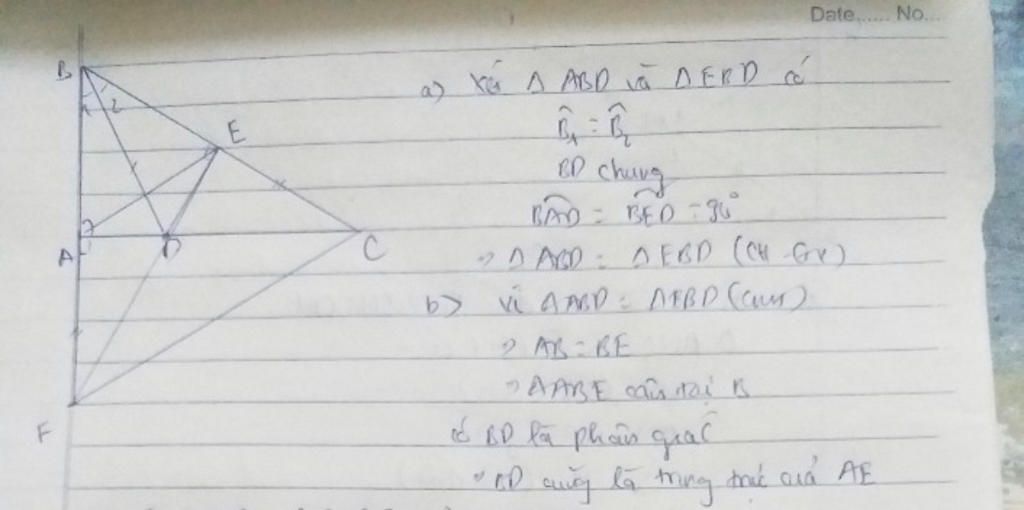 Date...... No...
B
1 2
E
A
1
D
C
F
a) Xét Δ ABD và Δ EBD có
B̂₁ = B̂₂
BD chung
BAD = BED = 90°
=> Δ ABD = Δ EBD (CH - GN)
b) Vì Δ ABD = Δ EBD (cmt)
=> AB = BE
=> Δ ABE cân tại B
Có BD là phân giác
=> BD cũng là trung trực của AE